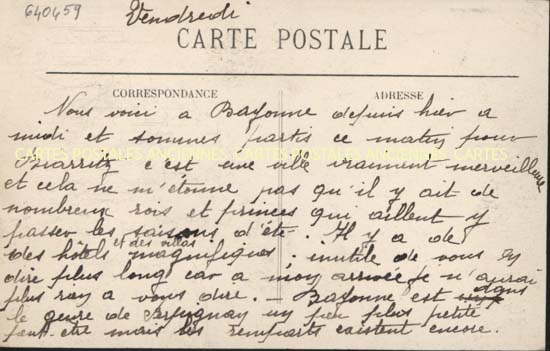 640459
Vendredi
CARTE POSTALE
CORRESPONDANCE
ADRESSE
Nous voici a Bayonne depuis hier a
midi et sommes partis ce matin pour
Biarritz c'est une ville vraiment merveilleuse
et cela ne m'étonne pas qu'il y ait de
nombreux rois et princes qui aillent y
passer les saisons d'été. Il y a de
des hôtels et des villas magnifiques, inutile de vous en
dire plus long car a mon arrivée je n'aurai
plus rien a vous dire. — Bayonne est dans
le genre de un peu plus petite
peut-etre mais les remparts existent encore.
CARTES POSTALES ANCIENNES CARTES POSTALES ANCIENNES CARTES